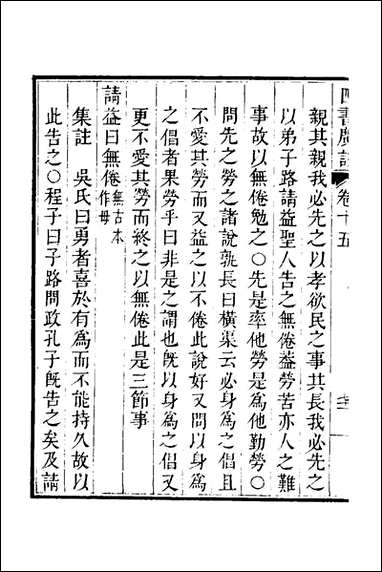 四書廣註 卷十五
親其親我必先之以孝欲民之事其長我必先之
以弟子路請益聖人告之無倦葢勞苦亦人之難
事故以無倦勉之○先是率他勞是為他勤勞○
問先之勞之諸說孰長曰橫渠云必身為之倡且
不愛其勞而又益之以不倦此說好又問以身為
之倡者果勞乎曰非是之謂也旣以身為之倡又
更不愛其勞而終之以無倦此是三節事
請益曰無倦無古本作毋
集註 吳氏曰勇者喜於有為而不能持久故以
此告之○程子曰子路問政孔子旣告之矣及請